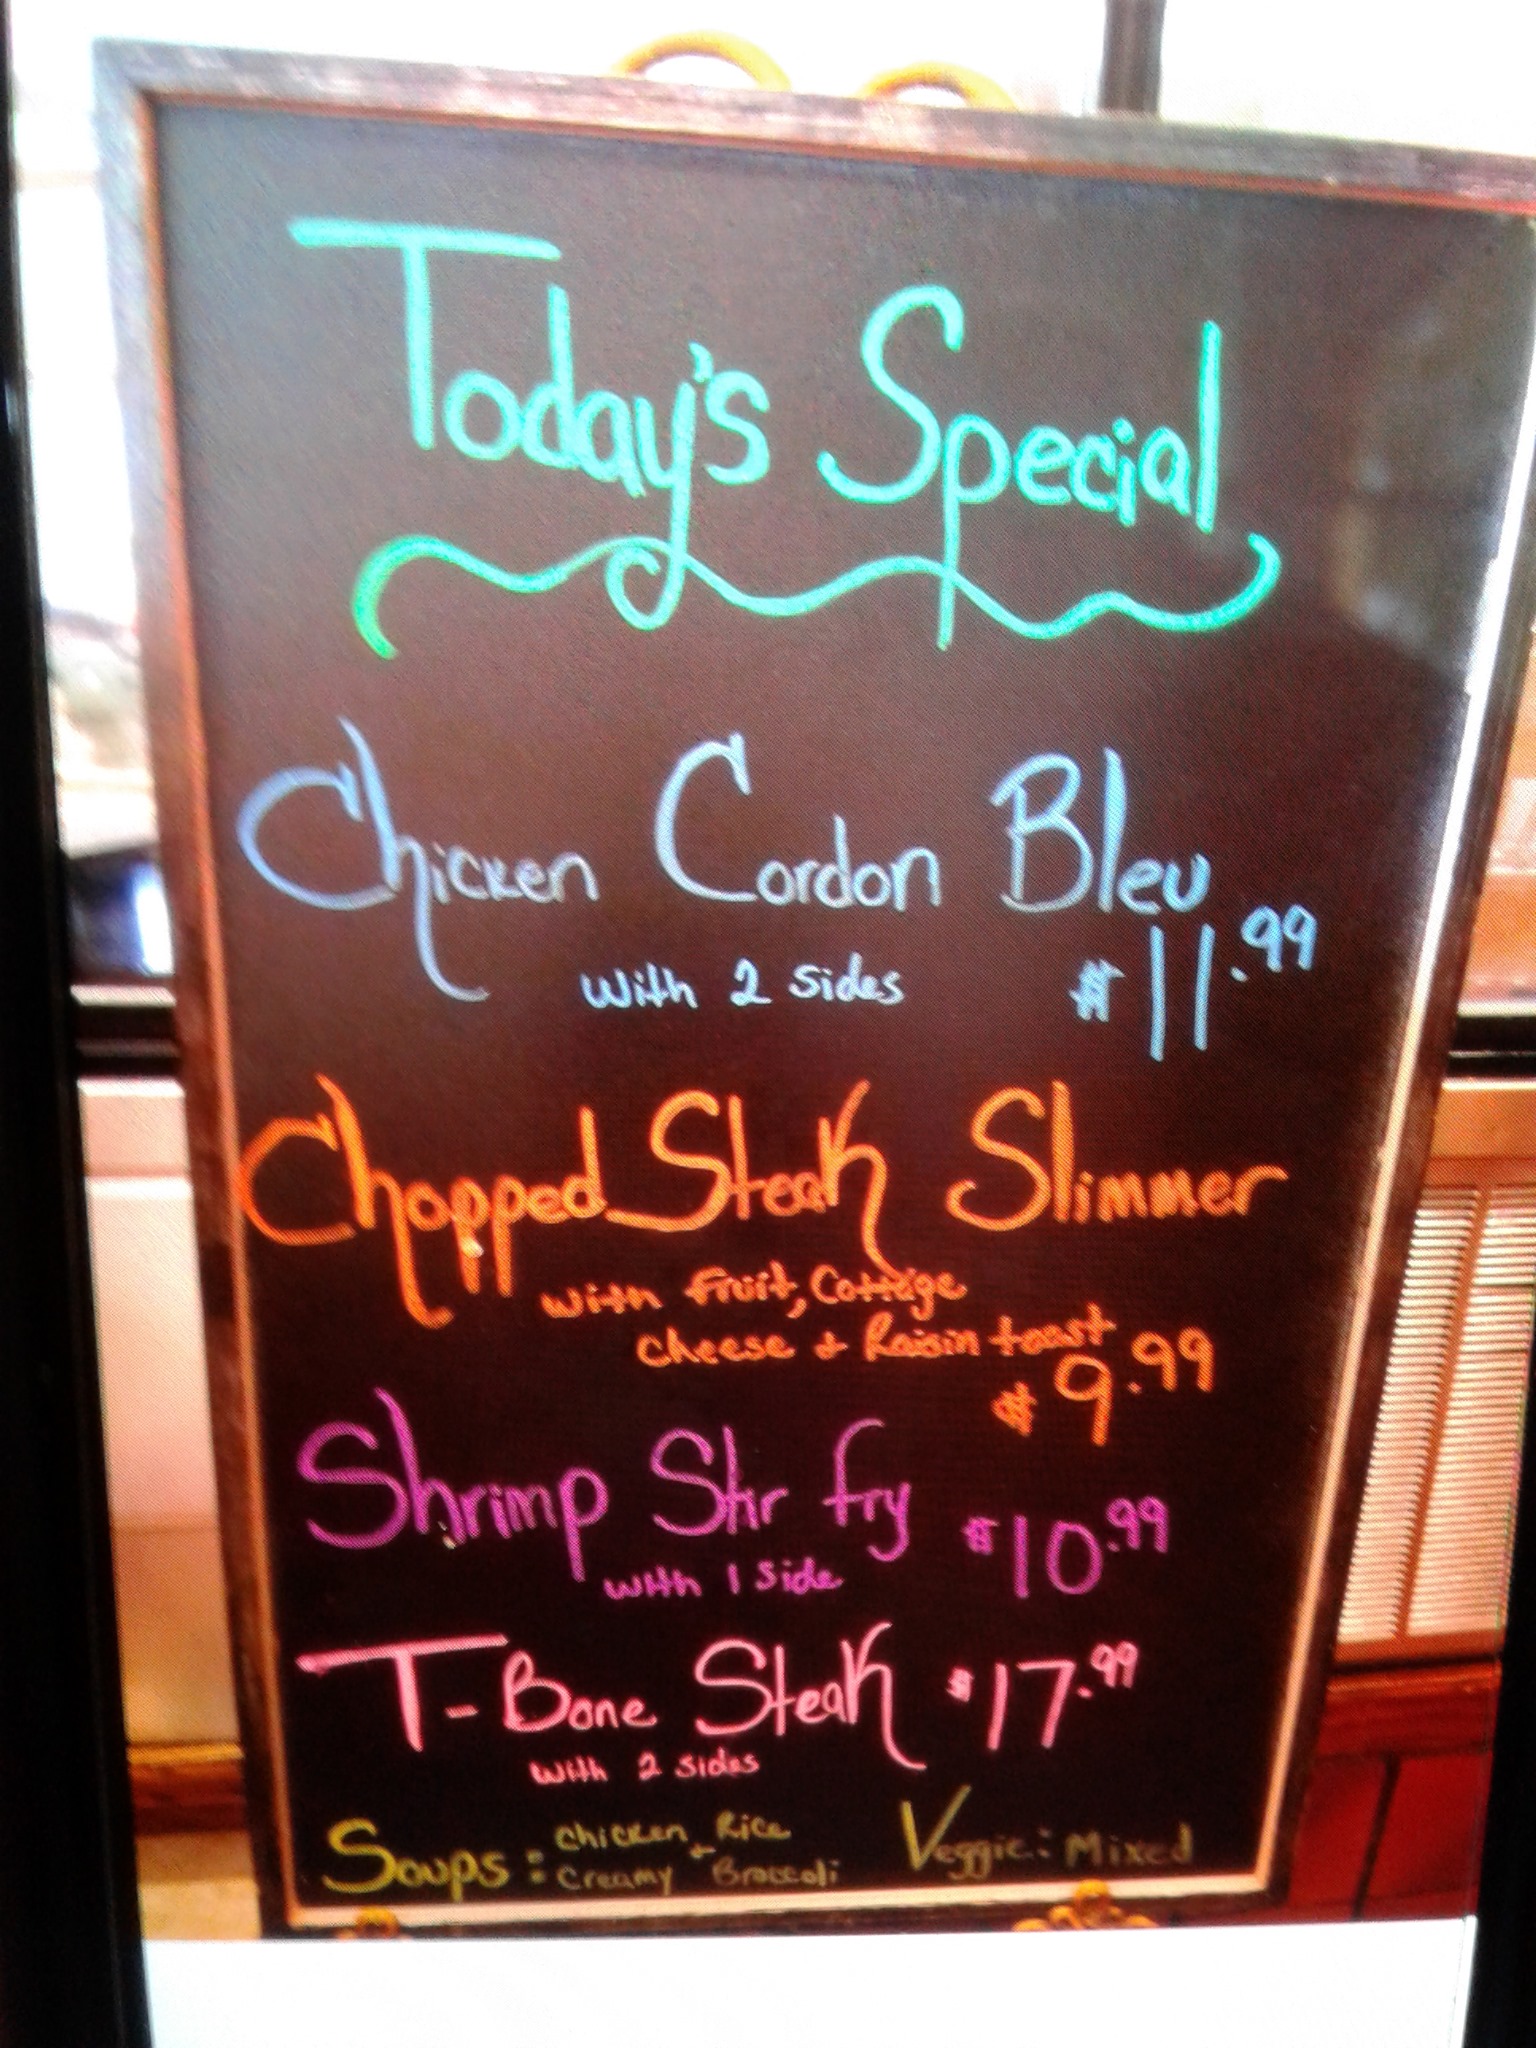 Today's Special
Chicken Cordon Bleu
with 2 sides $11.99
Chopped Steak Slimmer
with fruit, Cottage
cheese + Raisin toast
$9.99
Shrimp Stir fry $10.99
with 1 side
T-Bone Steak $17.99
with 2 sides
Soups: Chicken Rice
+
Creamy Broccoli
Veggie: Mixed